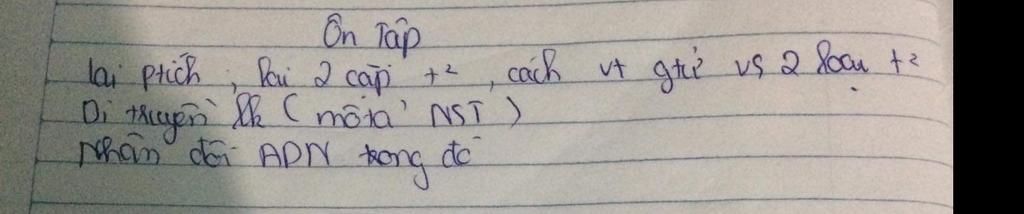 Ôn Tập
lai ptích, lai 2 cặp t², cách vt gtử vs 2 loại t²
Di truyền lk (mô tả NST)
Nhân đôi ADN trong đó